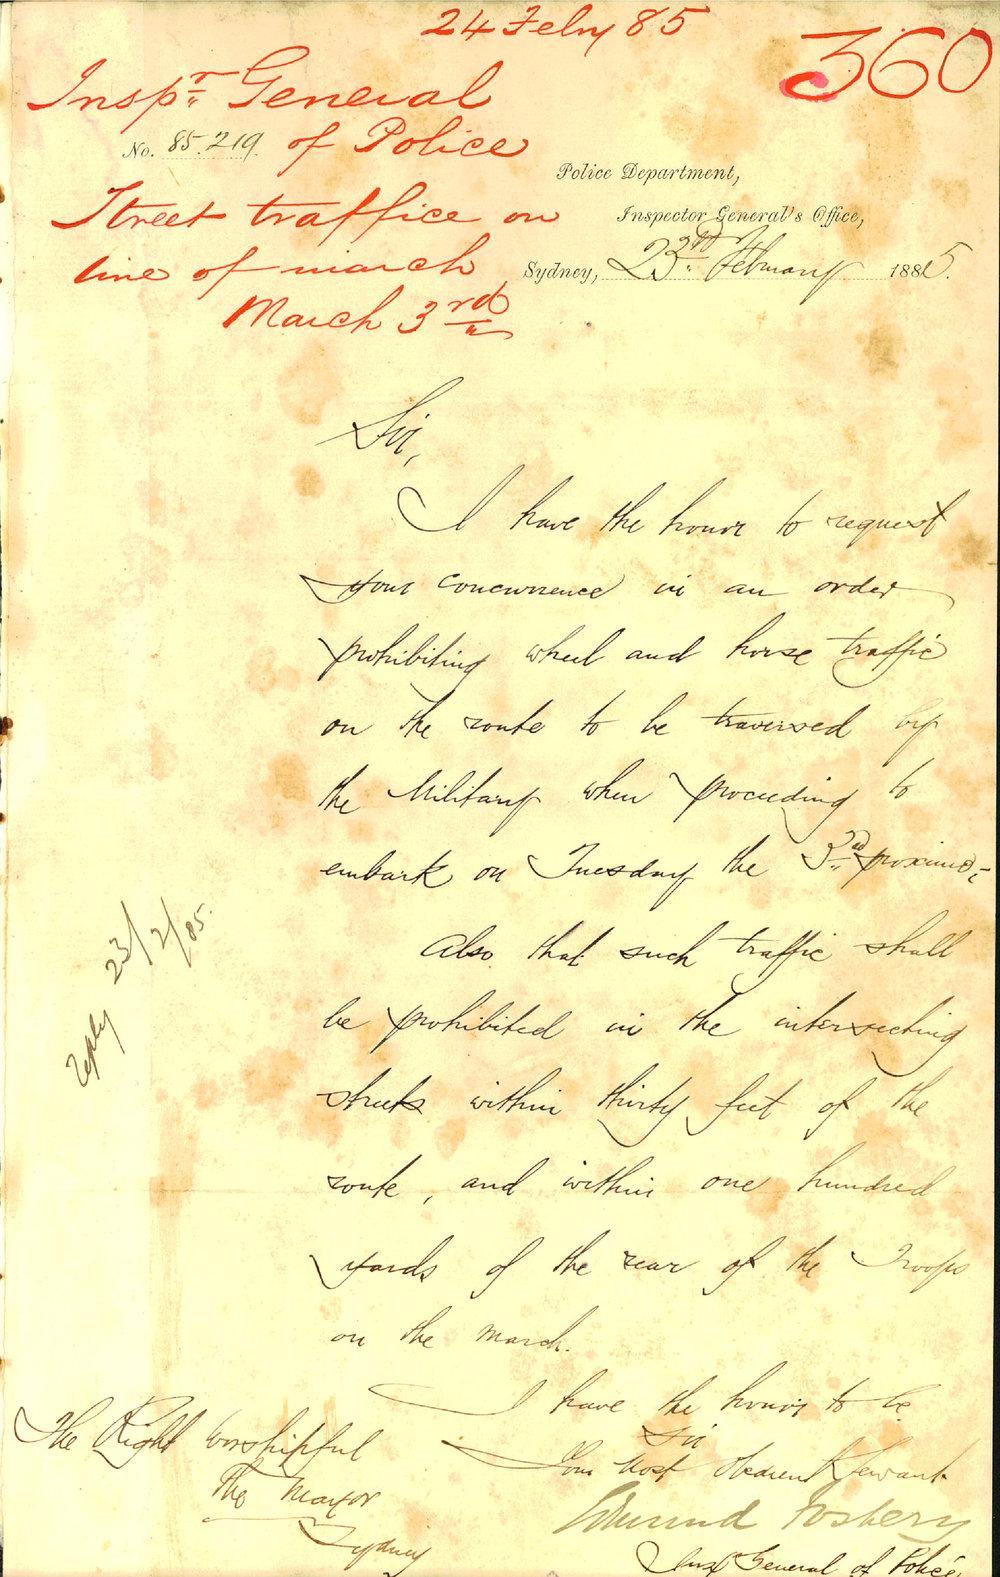 24 Feby 85
360
Inspr General
No. 85.219 of Police
Street traffice on
line of march
March 3rd
Police Department,
Inspector General's Office,
Sydney, 23rd February 1885.
Sir,
I have the honor to request
your concurrence in an order
prohibiting wheel and horse traffic
on the route to be traversed by
the Military when proceeding to
embark on Tuesday the 3rd proximo;
Also that such traffic shall
be prohibited in the intersecting
streets within thirty feet of the
route, and within one hundred
yards of the rear of the Troops
on the march.
I have the honor to be
Sir
Your Most Obedient Servant
Edmund Fosbery
Insp General of Police.
The Right Worshipful
The Mayor
Sydney
Reply 23/2/85.